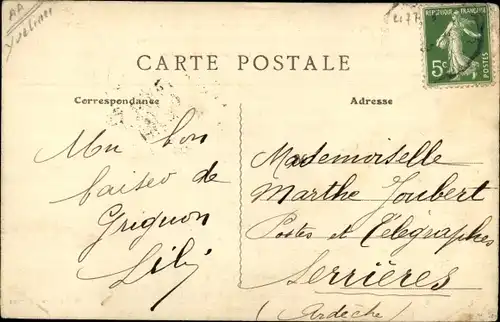 AP
Yvelines
RÉPUBLIQUE FRANÇAISE
5c
POSTES
CARTE POSTALE
Correspondance
Adresse
Un bon
baiser de
Grignon
Lily
Mademoiselle
Marthe Joubert
Postes et Télégraphes
Serrières
(Ardèche)